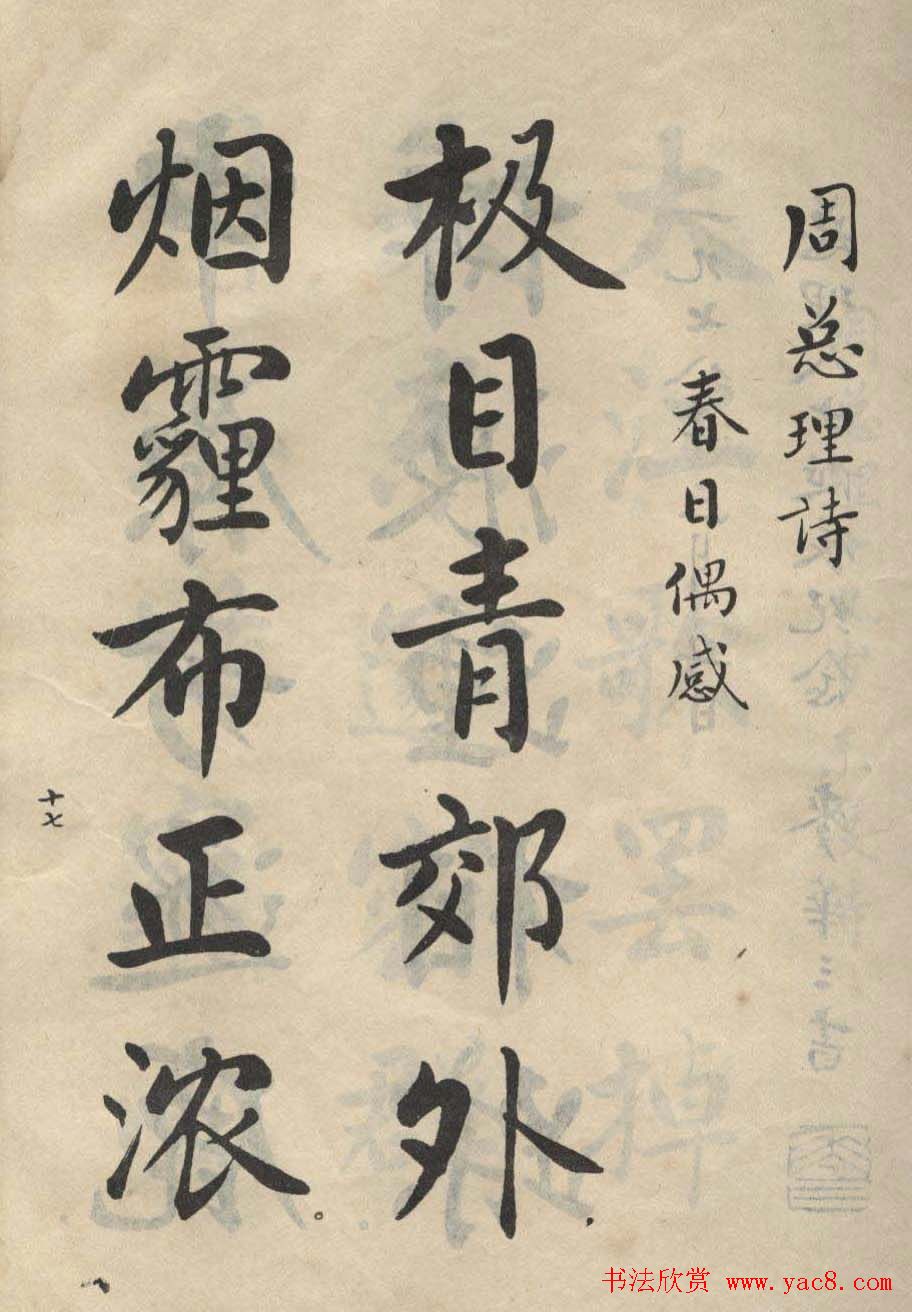 周总理詩
春日偶感
极目青郊外，
烟霾布正浓。
十七
书法欣赏 www.yac8.com